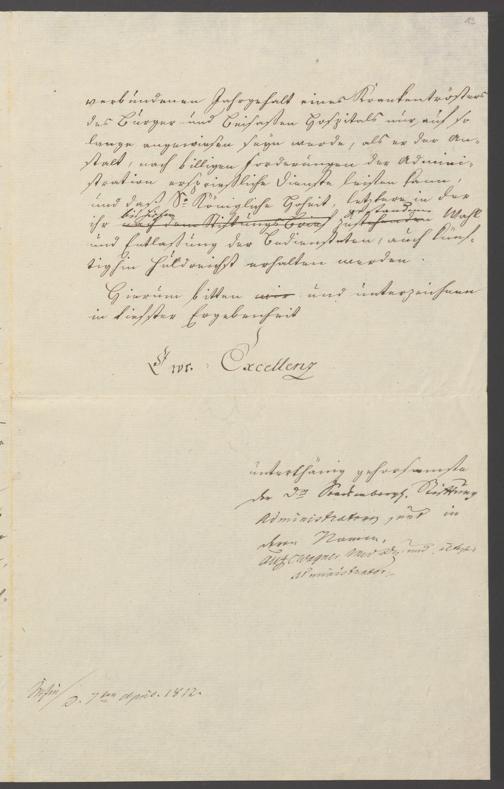 verbundenen Jahrgehalt eines Krankentrösters
des Bürger und Beisaßen Hospitals nur auf so
lange angewiesen seyn werde, als er der An-
stalt, nach billigen Forderungen der Admini-
stration ersprießliche Dienste leisten kann,
und daß Se. Königliche Hoheit, letztere in der
bisherigen zugestandenen
ihr nach dem Stiftungs Wahl
und Entlassung der Bediensteten, auch künf-
tighin huldreichst erhalten werden.
Hierum bitten wir und unterzeichnen
in tiefster Ergebenheit
Ewr. Excellenz
unterthänig gehorsamste
der Dr. Senckenberg. Stiftung
Administratoren, und in
deren Namen,
Administrator
D. 7ten April 1812.